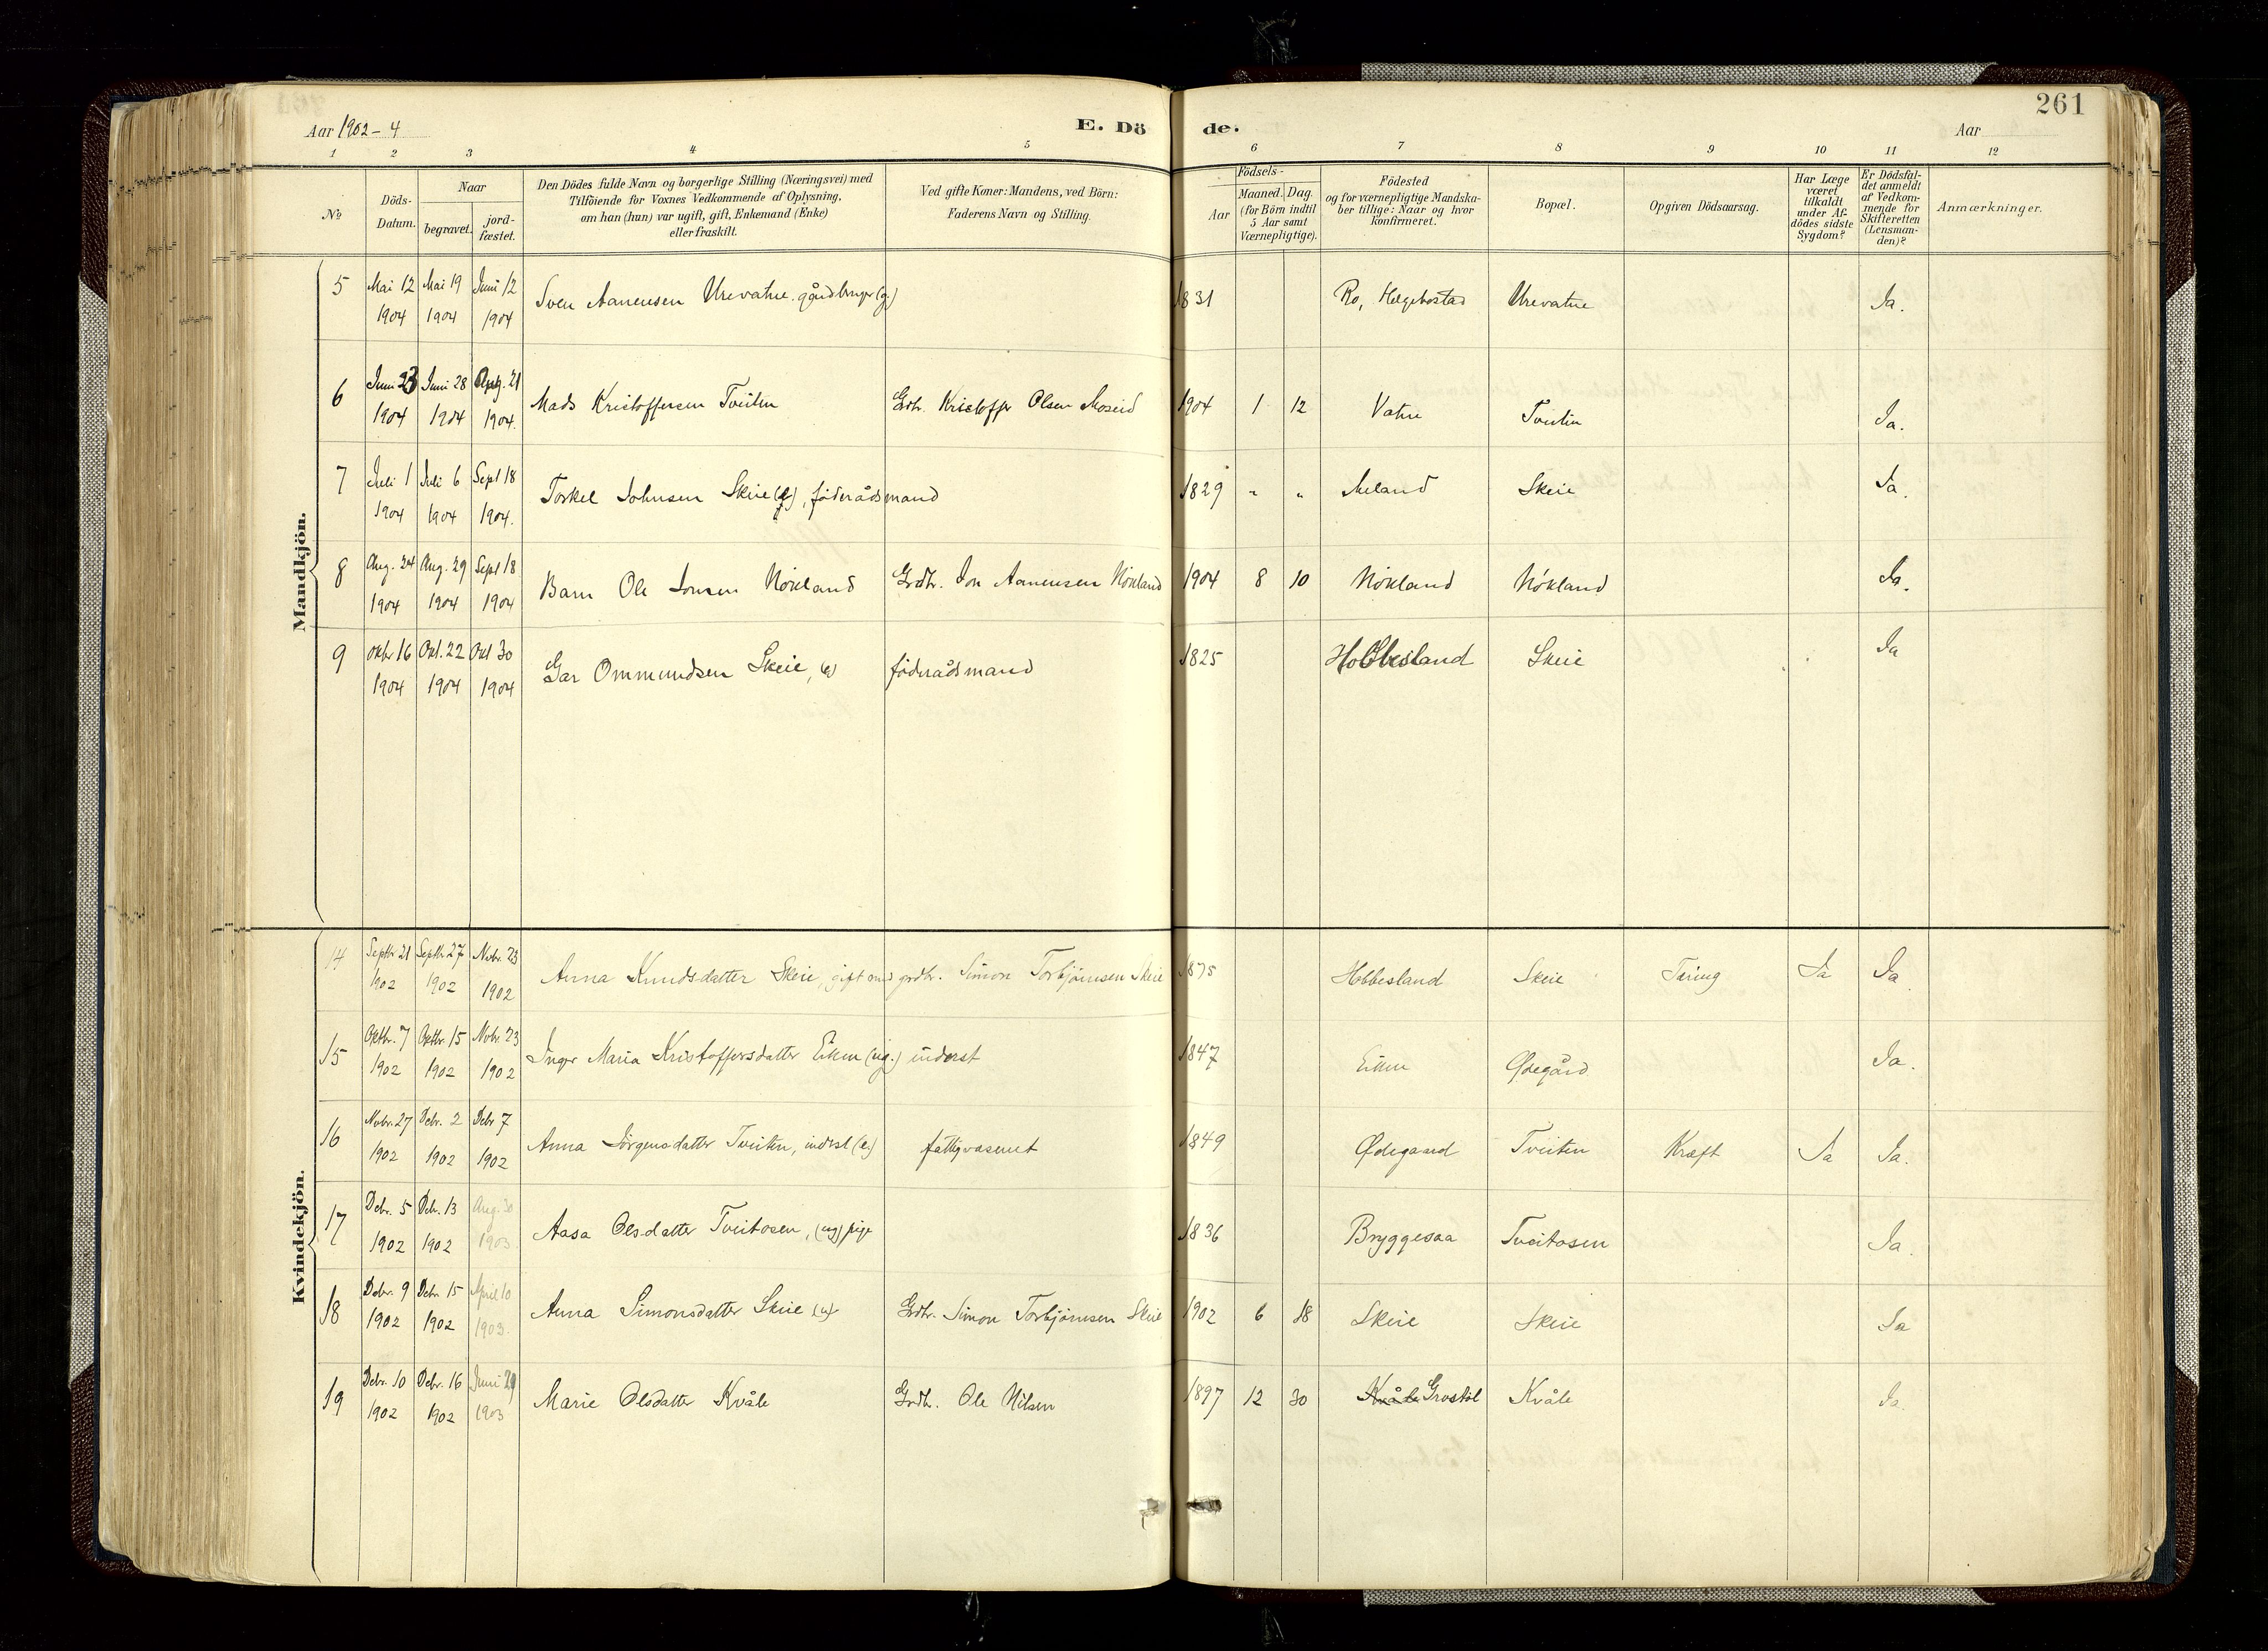 261
Aar 1902-4
E. Dö de.
Aar
1 2 3 4 5 6 7 8 9 10 11 12
No
Döds-Datum.
Naar
begravet.
jord-fæstet.
Den Dödes fulde Navn og borgerlige Stilling (Næringsvei) med
Tilföiende for Voxnes Vedkommende af Oplysning,
om han (hun) var ugift, gift, Enkemand (Enke)
eller fraskilt.
Ved gifte Koner: Mandens, ved Börn:
Faderens Navn og Stilling.
Födsels-
Aar
Maaned. Dag.
(for Börn indtil
5 Aar samt
Værnepligtige).
Födested
og for værnepligtige Mandska-
ber tillige: Naar og hvor
konfirmeret.
Bopæl.
Opgiven Dödsaarsag.
Har Læge
været
tilkaldt
under Af-
dödes sidste
Sygdom?
Er Dödsfal-
det anmeldt
af Vedkom-
mende for
Skifteretten
(Lensman-
den)?
Anmærkninger.
Mandkjön.
5 Mai 12 1904 Mai 19 1904 Juni 12 1904 Sven Aanensen Urevatne. gårdbruger (g.) 1831 Ro, Hægebostad Urevatne Ja.
6 Juni 23 1904 Juni 28 1904 Aug. 21 1904. Mads Kristoffersen Tveiten Grdbr. Kristoffer Olsen Moseid 1904 1 12 Vatne Tveiten Ja.
7 Juli 1 1904 Juli 6 1904 Sept 18 1904. Torkel Johnsen Skeie (g), föderådsmand 1829 " " Aeland Skeie Ja.
8 Aug. 24 1904 Aug. 29 1904 Sept 18 1904 Barn Ole Jonsen Nökland Grdbr. Jon Aanensen Nökland 1904 8 10 Nökland Nökland Ja.
9 Oktbr 16 1904 Okt. 22 1904 Okt 30 1904 Ommundsen Skeie, (e) föderådsmand 1825 Hobbesland Skeie Ja
Kvindekjön.
14 Septbr 21 1902 Septbr 27 1902 Novbr. 23 1902 Anna Knudsdatter Skeie, gift med grdbr. Simon Torbjörnsen Skeie 1875 Hobbesland Skeie Tæring Ja Ja.
15 Oktbr. 7 1902 Oktbr. 15 1902 Novbr. 23 1902 Inger Maria Kristoffersdatter Eiken (ug.) inderst 1847 Eiken Ødegård Ja.
16 Novbr. 27 1902 Debr. 2 1902 Debr 7 1902 Anna Jörgensdatter Tveiten, inderst (e) fattigvæsenet 1849 Ødegaard Tveiten Kræft Ja Ja.
17 Debr. 5 1902 Deb. 13 1902 Aug. 30 1903. Aasa Olsdatter Tveitosen, (ug) pige 1836 Bryggesaa Tveitosen Ja.
18 Debr. 9 1902 Debr. 15 1902 April 10 1903. Anna Simonsdatter Skeie (u) Grdbr. Simon Torbjörnsen Skeie 1902 6 18 Skeie Skeie Ja
19 Debr. 10 1902 Debr. 16 1902 Juni 29 1903 Marie Olsdatter Kvåle Grdbr. Ole Nilsen 1897 12 30 Kvåle Grostöl Kvåle Ja.